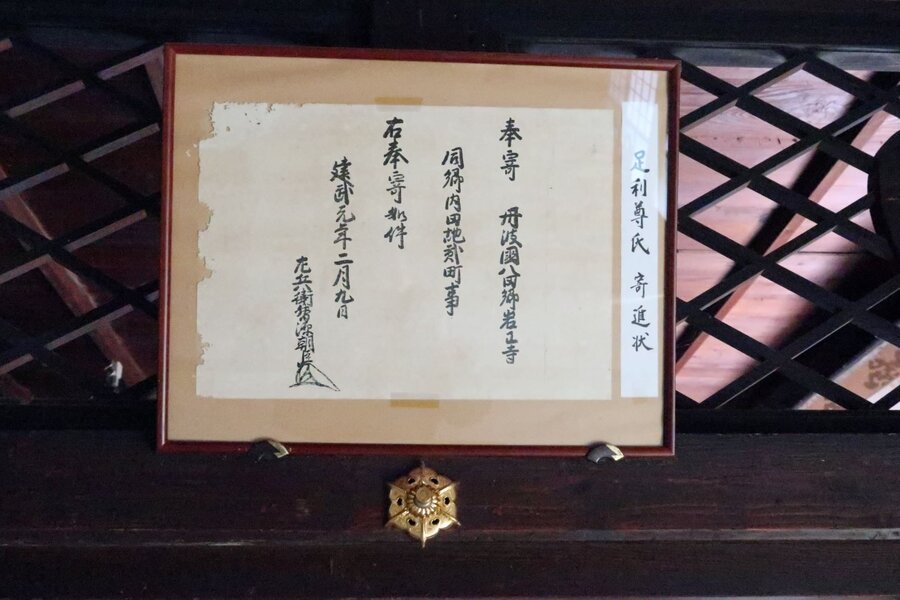 足利尊氏 寄進状
奉寄 丹波國八田郷岩王寺
同郷内田地貳町事
右奉寄如件
建武元年二月九日
左兵衛督源朝臣